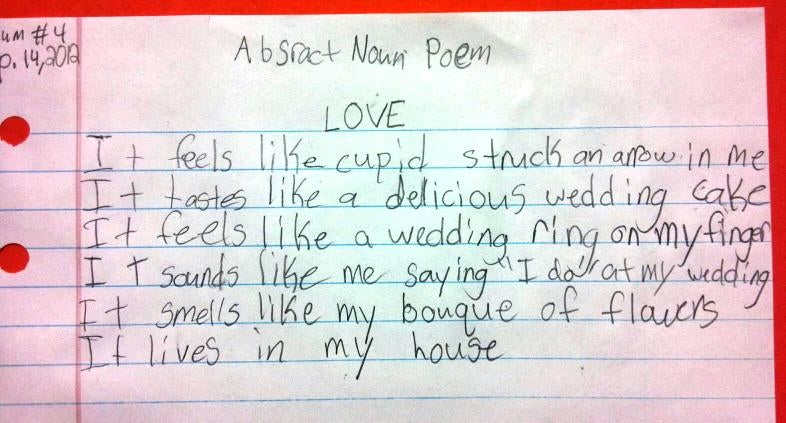 um #4
p. 14, 2012
Absract Noun Poem
LOVE
It feels like cupid struck an arrow in me
It tastes like a delicious wedding cake
It feels like a wedding ring on my finger
It sounds like me saying "I do" at my wedding
It smells like my bouque of flawers
It lives in my house